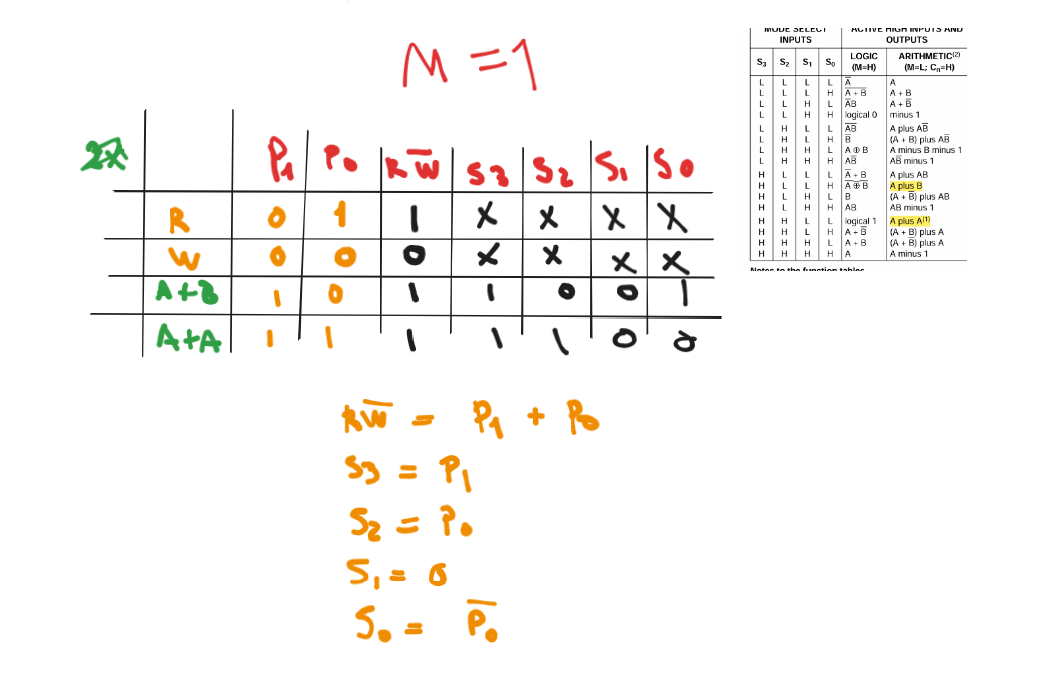 M = 1
2x
P1 P0 RW̅ S3 S2 S1 S0
R 0 1 1 X X X X
W 0 0 0 X X X X
A+B 1 0 1 1 0 0 1
A+A 1 1 1 1 1 0 0
RW̅ = P1 + P0
S3 = P1
S2 = P0
S1 = 0
S0 = P̅0̅
MODE SELECT INPUTS
ACTIVE HIGH INPUTS AND OUTPUTS
S3 S2 S1 S0 LOGIC (M=H) ARITHMETIC(2) (M=L; Cn=H)
L L L L A̅ A
L L L H A̅ ̅+̅ ̅B̅ A + B
L L H L A̅B A + B̅
L L H H logical 0 minus 1
L H L L A̅B̅ A plus AB̅
L H L H B̅ (A + B) plus AB̅
L H H L A ⊕ B A minus B minus 1
L H H H AB̅ AB̅ minus 1
H L L L A̅ + B A plus AB
H L L H A̅ ̅⊕̅ ̅B̅ A plus B
H L H L B (A + B̅) plus AB
H L H H AB AB minus 1
H H L L logical 1 A plus A(1)
H H L H A + B̅ (A + B) plus A
H H H L A + B (A + B̅) plus A
H H H H A A minus 1
Notes to the function tables